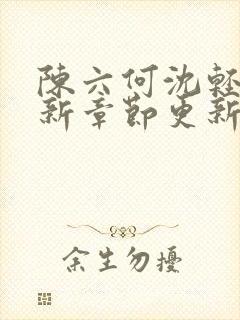 陳六何沈輕
新章節更新
余生勿擾